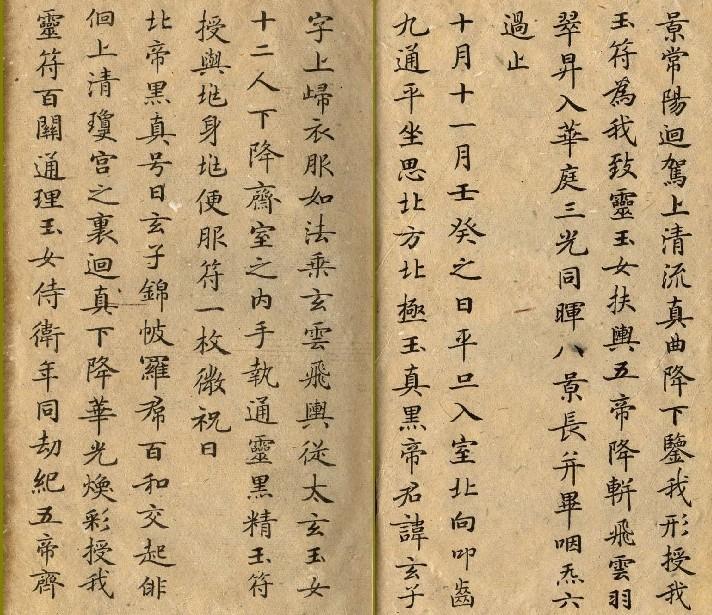 景常陽迴駕上清流真曲降下鑒我形授我
玉符為我致靈玉女扶輿五帝降軿飛雲羽
翠昇入華庭三光同暉八景長并畢咽炁六
過止
十月十一月壬癸之日平旦入室北向叩齒
九通平坐思北方北極玉真黑帝君諱玄子
字上歸衣服如法乗玄雲飛輿従太玄玉女
十二人下降齋室之内手執通靈黑精玉符
授與地身地便服符一枚微祝曰
北帝黑真号曰玄子錦帔羅帬百和交起俳
佪上清瓊宮之裏迴真下降華光煥彩授我
靈符百關通理玉女侍衛年同劫紀五帝齊